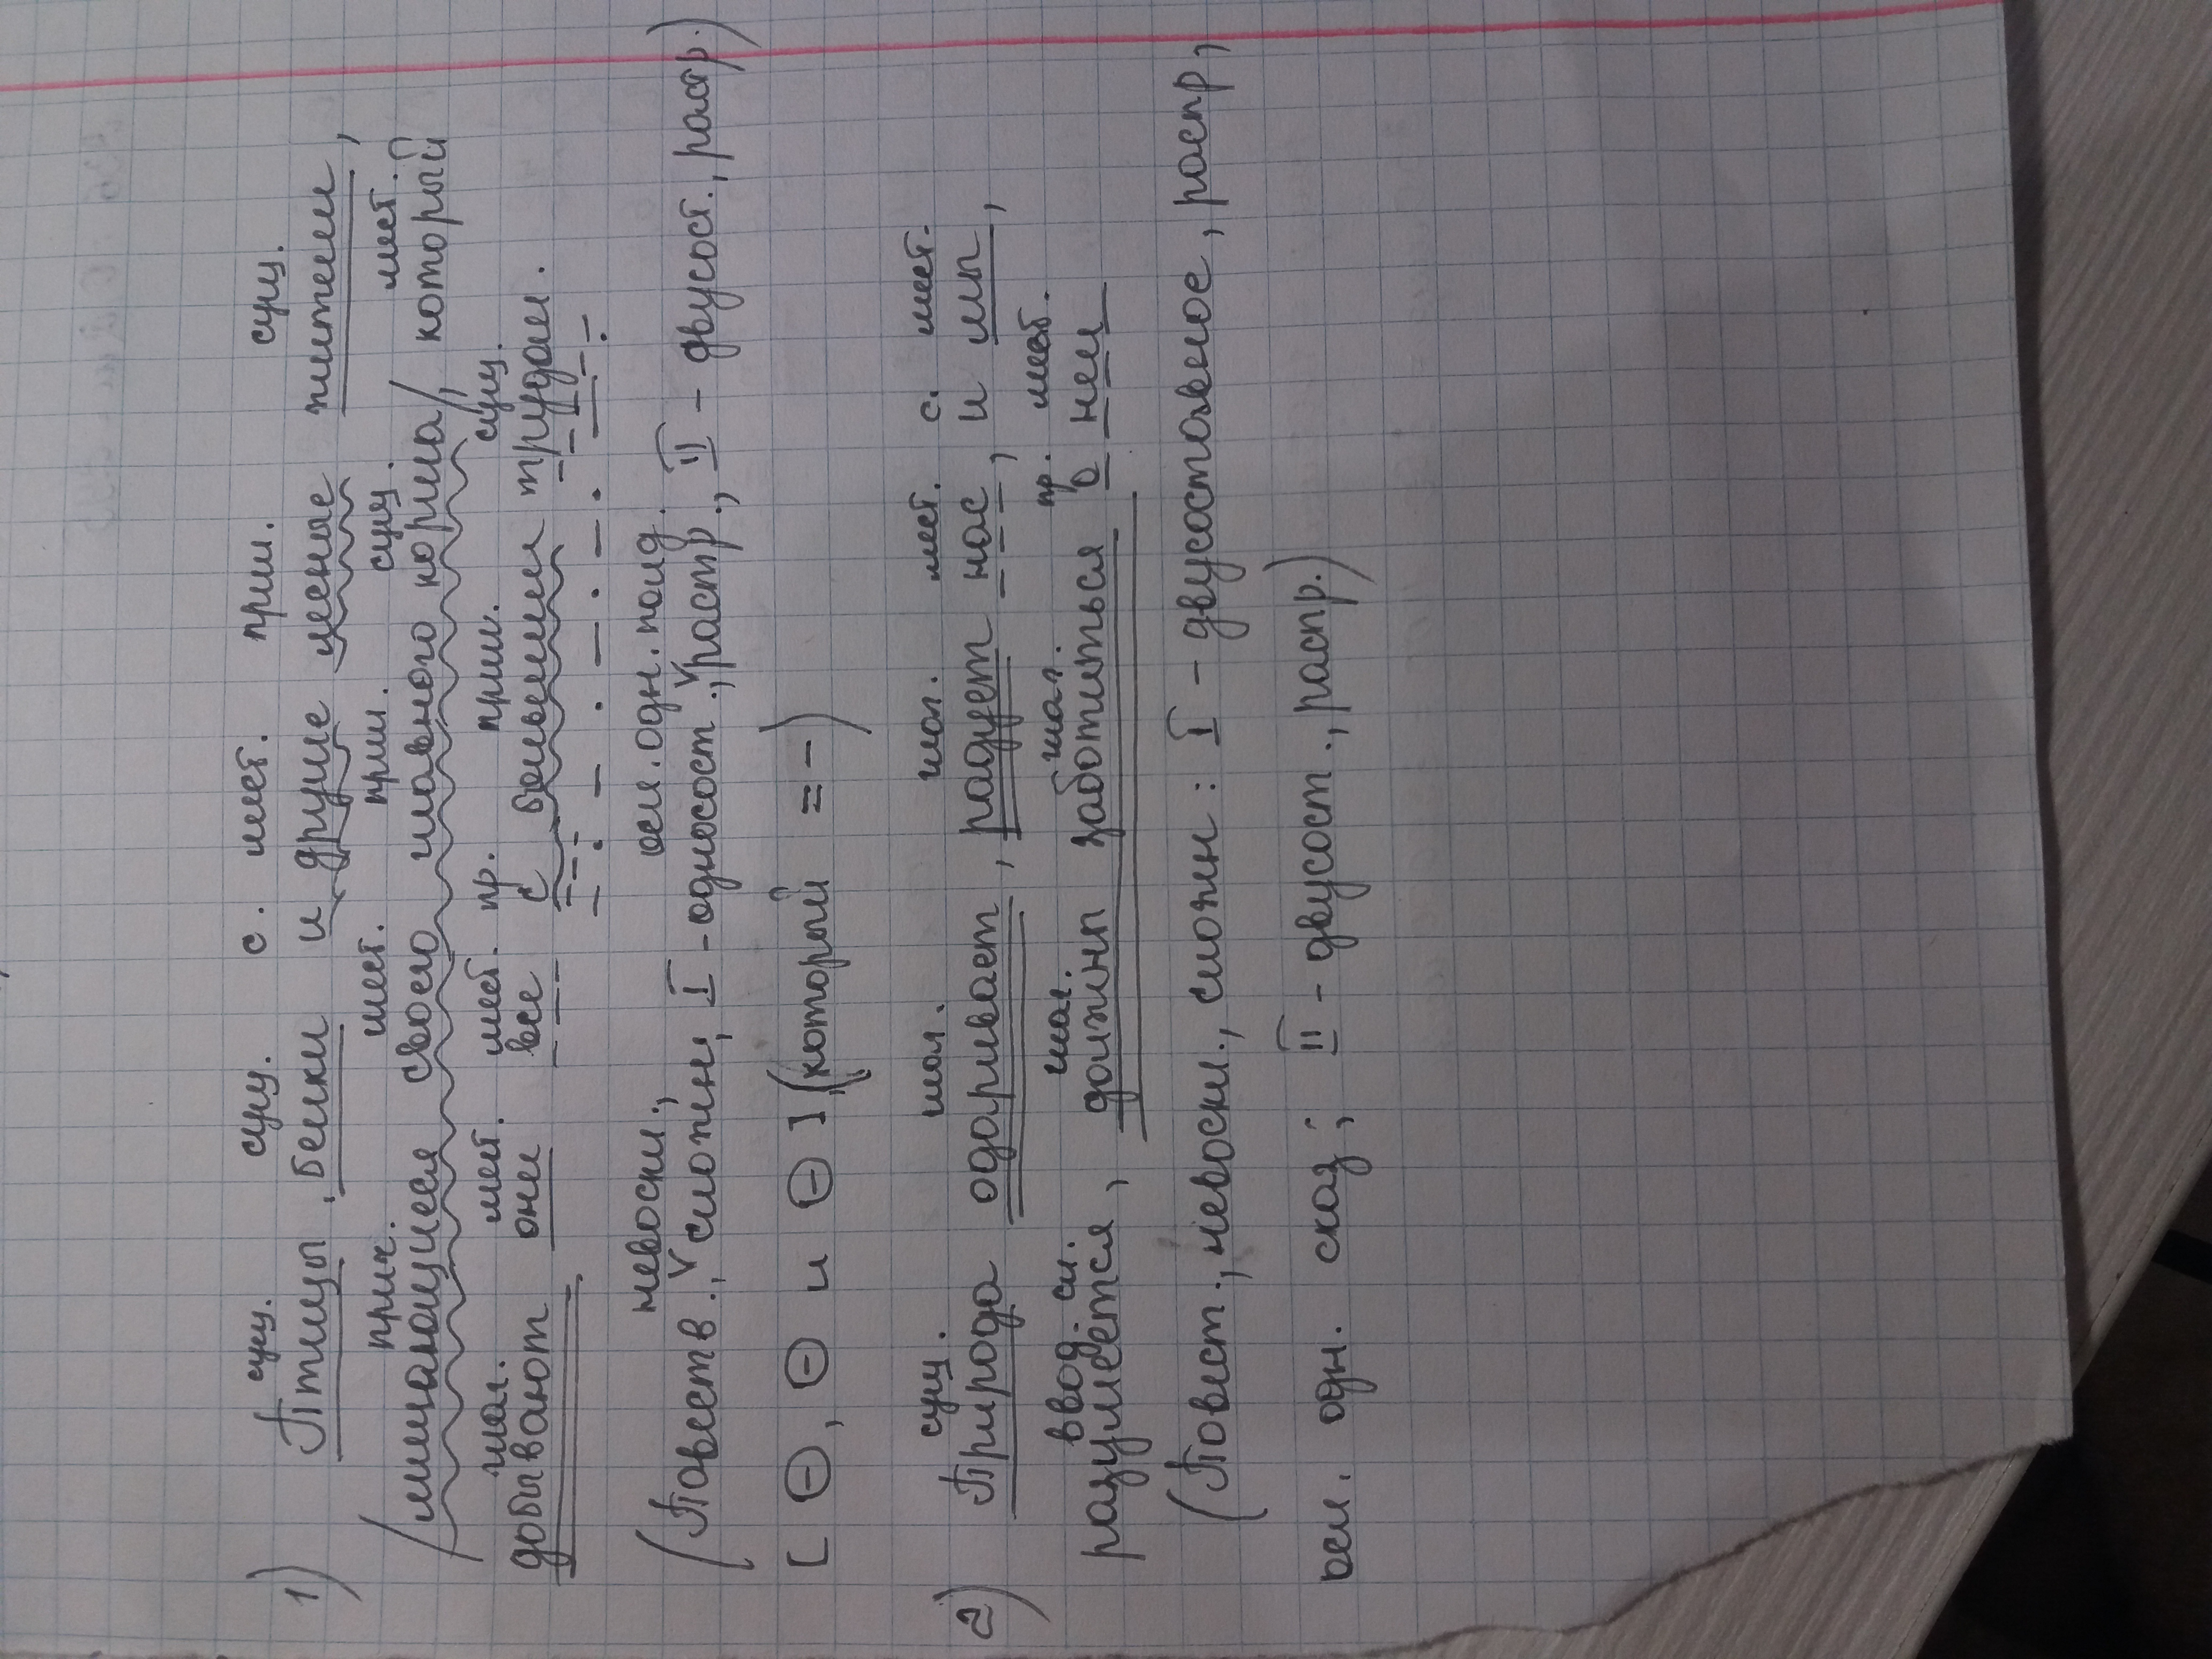 сущ. сущ. с. мест. прил. сущ.
1) Птицы, белки и другие лесные жители,
прич. мест. прил. сущ. мест.
/лишающиеся своего главного корма/, который
глаг. мест. мест. пр. прил. сущ.
добывают они все с большими трудам.
невоскл., осл. одн. подл.
(Повеств., сложн, I - односост., растр., II - двусост., растр.)
[ , и ](который = -)
сущ. глаг. глаг. мест. с. мест.
2) Природа одаривает, радует нас, и мы,
ввод. сл. глаг. глаг. пр. мест.
разумеется, должны заботиться о нем
(Повест., невоскл., сложн: I - двусоставное, распр,
осл. одн. сказ; II - двусост., распр.)